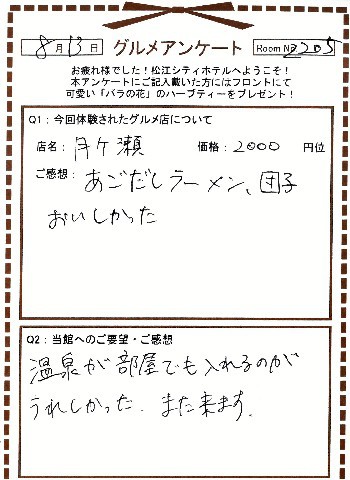 8月13日 グルメアンケート Room No 2205
お疲れ様でした!松江シティホテルへようこそ!
本アンケートにご記入戴いた方にはフロントにて
可愛い「バラの花」のハーブティーをプレゼント!
Q1:今回体験されたグルメ店について
店名: 月ケ瀬 価格: 2000 円位
ご感想: あごだしラーメン、団子
おいしかった
Q2:当館へのご要望・ご感想
温泉が部屋でも入れるのが
うれしかった. また来ます.